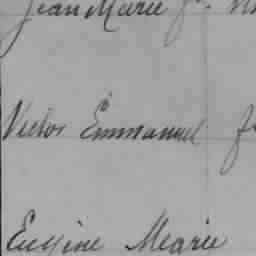 Jean Marie f.
Victor Emmanuel f
Eugène Mearie